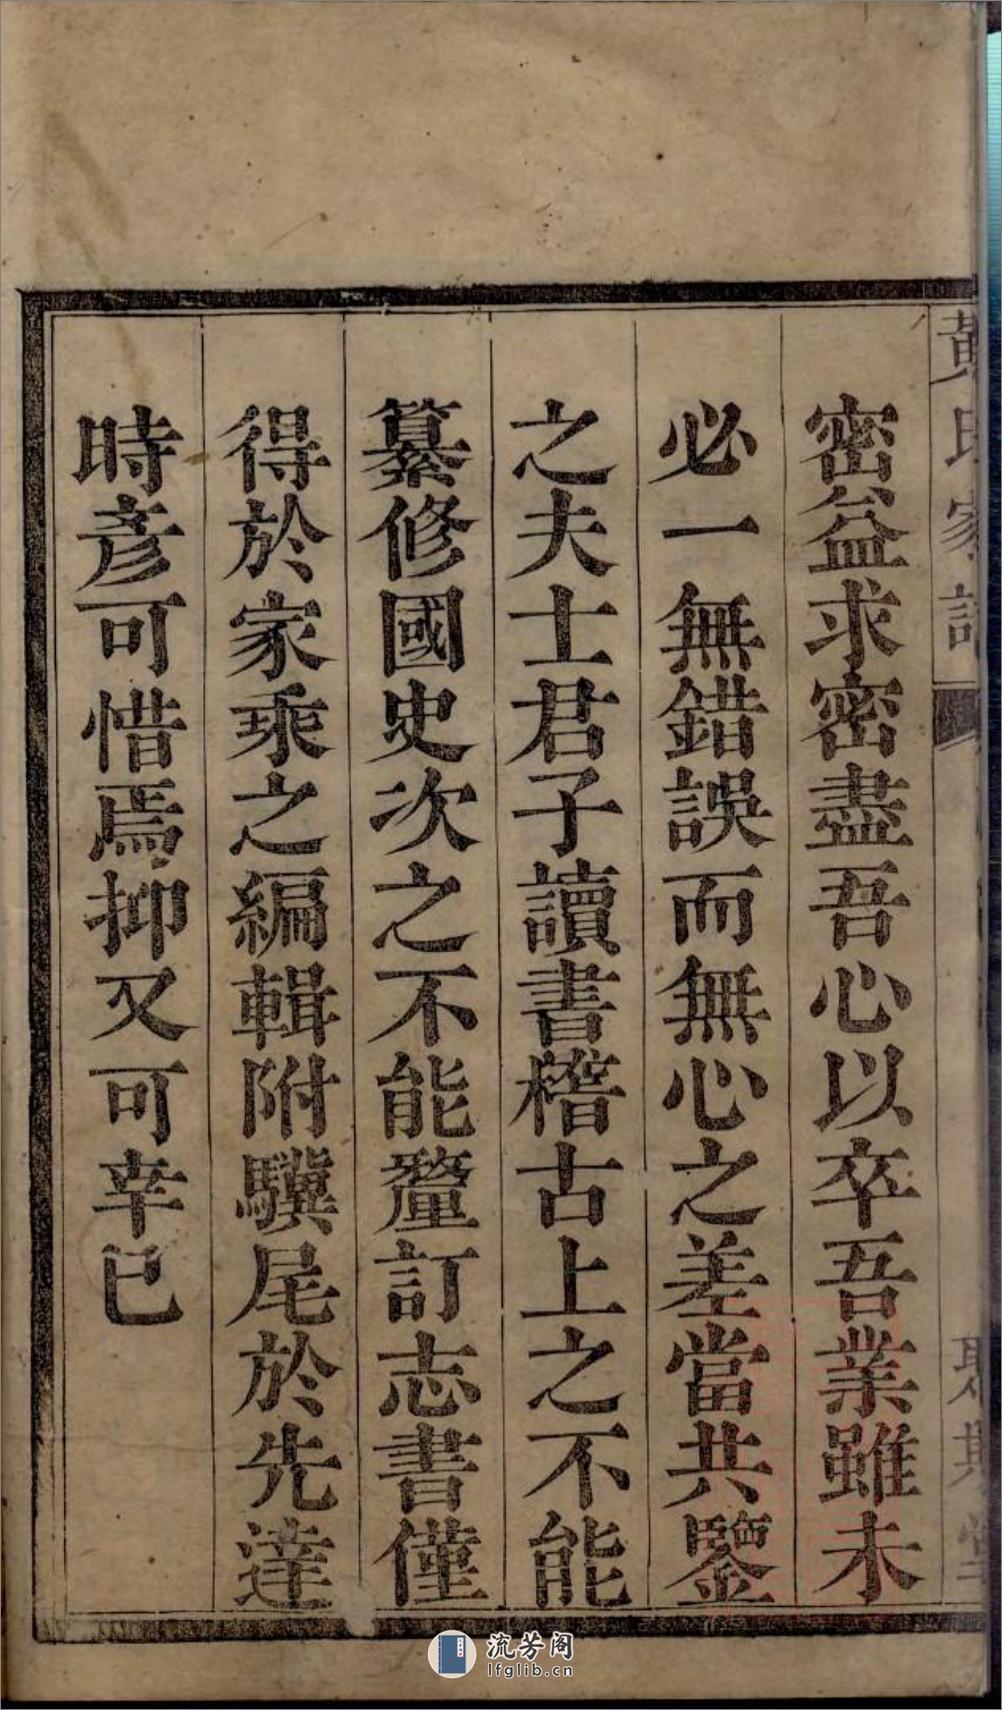 黃氏家譜
密益求密盡吾心以卒吾業雖未
必一無錯誤而無心之差當共鑒
之夫士君子讀書稽古上之不能
纂修國史次之不能釐訂志書僅
得於家乘之編輯附驥尾於先達
時彥可惜焉抑又可幸已
流芳阁
lfglib.cn